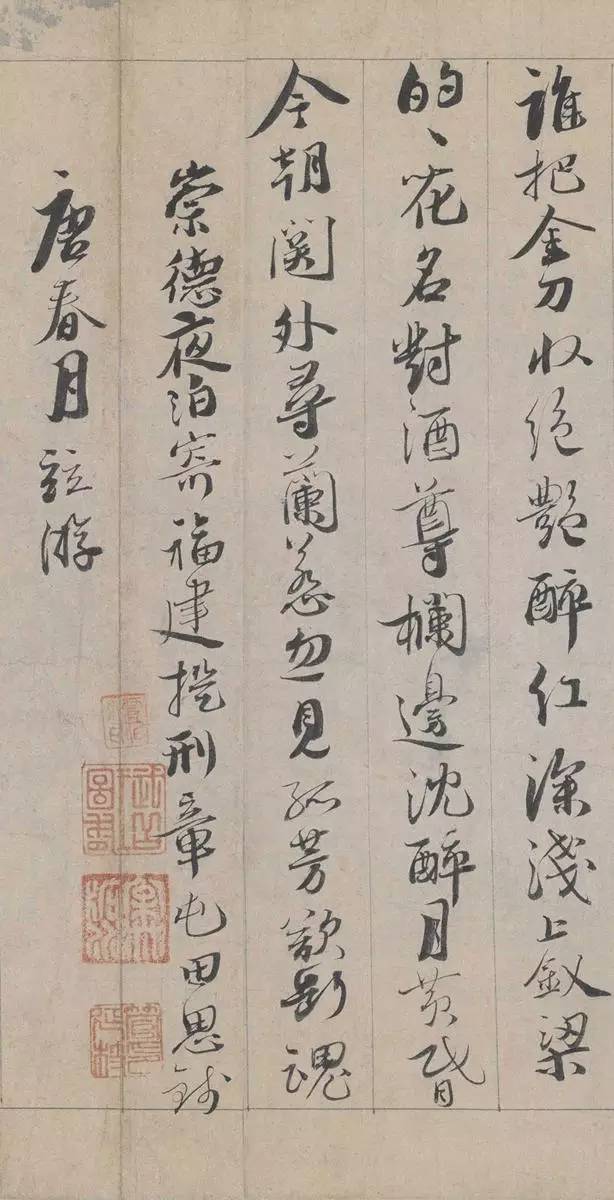 誰把金刀收絕艷醉紅深淺上釵梁
的々花名對酒尊欄邊沈醉月黃昏
今朝關外尋蘭蕙忽見孤芳欲斷魂
崇德夜泊寄福建提刑章屯田思錢
唐春月竝游